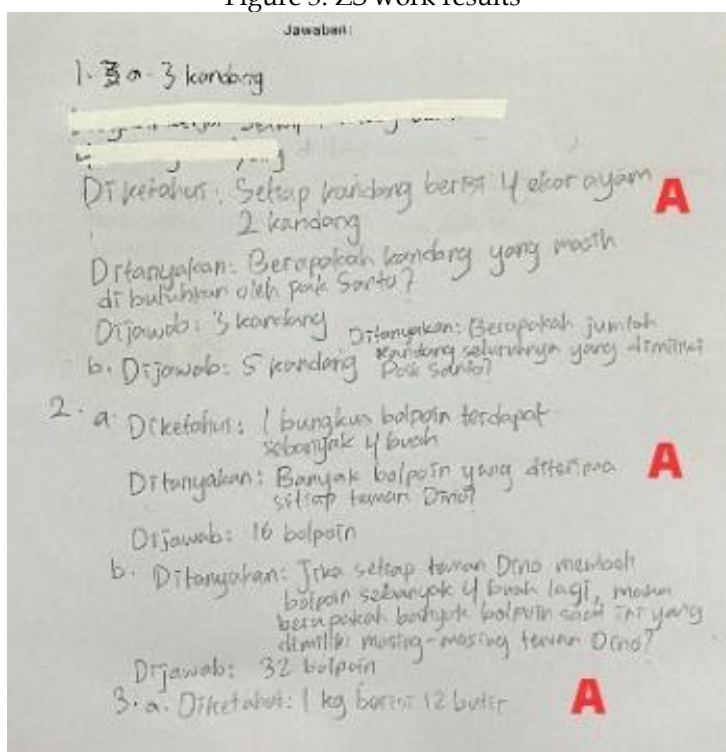 Figure 3. ZS work results
Jawaban:
1. a. 3 kandang
Diketahui: Setiap kandang berisi 4 ekor ayam
A
2 kandang
Ditanyakan: Berapakah kandang yang masih
di butuhkan oleh pak Santo?
Dijawab: 3 kandang
Ditanyakan: Berapakah jumlah
kandang seluruhnya yang dimiliki
Pak Santo?
b. Dijawab: 5 kandang
2. a. Diketahui: 1 bungkus bolpoin terdapat
sebanyak 4 buah
Ditanyakan: Banyak bolpoin yang diterima
setiap teman Dino?
A
Dijawab: 16 bolpoin
b. Ditanyakan: Jika setiap teman Dino membeli
bolpoin sebanyak 4 buah lagi, maka
berapakah banyak bolpoin saat ini yang
dimiliki masing-masing teman Dino?
Dijawab: 32 bolpoin
3. a. Diketahui: 1 kg berisi 12 butir
A